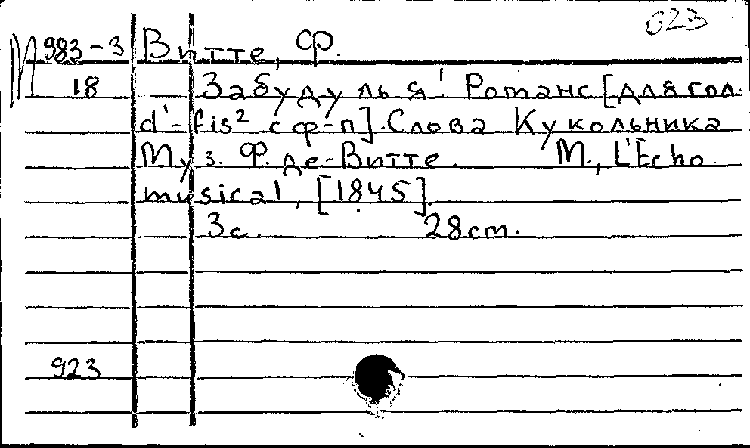 623
М 983-3 Витте, Ф.
18 — Забуду ль я! Романс [для гол.
d'-fis² с ф-п]. Слова Кукольника
Муз. Ф. де-Витте. М., L'Echo
musical, [1845].
3с. 28cm.
923